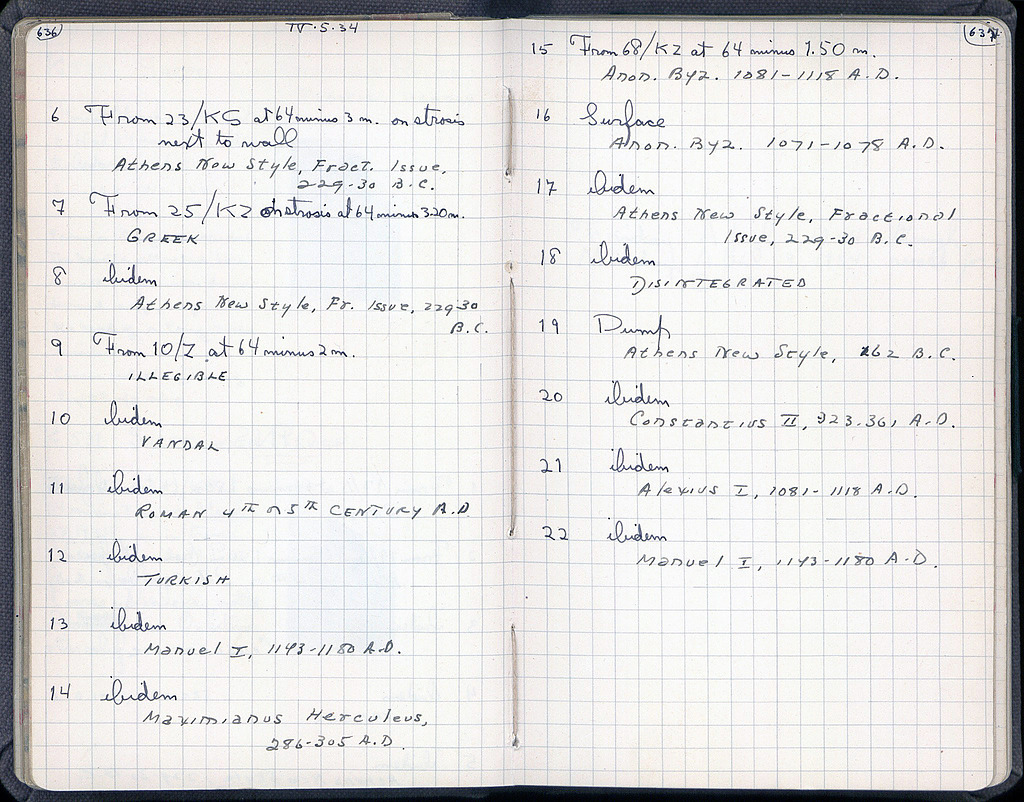 636
IV.5.34
6 From 23/KS at 64 minus 3 m. on strosis
next to wall
Athens New Style, Fract. Issue,
229-30 B.C.
7 From 25/KZ on strosis at 64 minus 3.20 m.
GREEK
8 ibidem
Athens New Style, Fr. Issue, 229-30
B.C.
9 From 10/Z at 64 minus 2 m.
ILLEGIBLE
10 ibidem
VANDAL
11 ibidem
ROMAN 4TH OR 5TH CENTURY A.D.
12 ibidem
TURKISH
13 ibidem
Manuel I, 1143-1180 A.D.
14 ibidem
Maximianus Herculeus,
286-305 A.D.
637
15 From 68/KZ at 64 minus 1.50 m.
Anon. Byz. 1081-1118 A.D.
16 Surface
Anon. Byz. 1071-1078 A.D.
17 ibidem
Athens New Style, Fractional
Issue, 229-30 B.C.
18 ibidem
DISINTEGRATED
19 Dump
Athens New Style, B.C.
20 ibidem
Constantius II, 323-361 A.D.
21 ibidem
Alexius I, 1081-1118 A.D.
22 ibidem
Manuel I, 1143-1180 A.D.